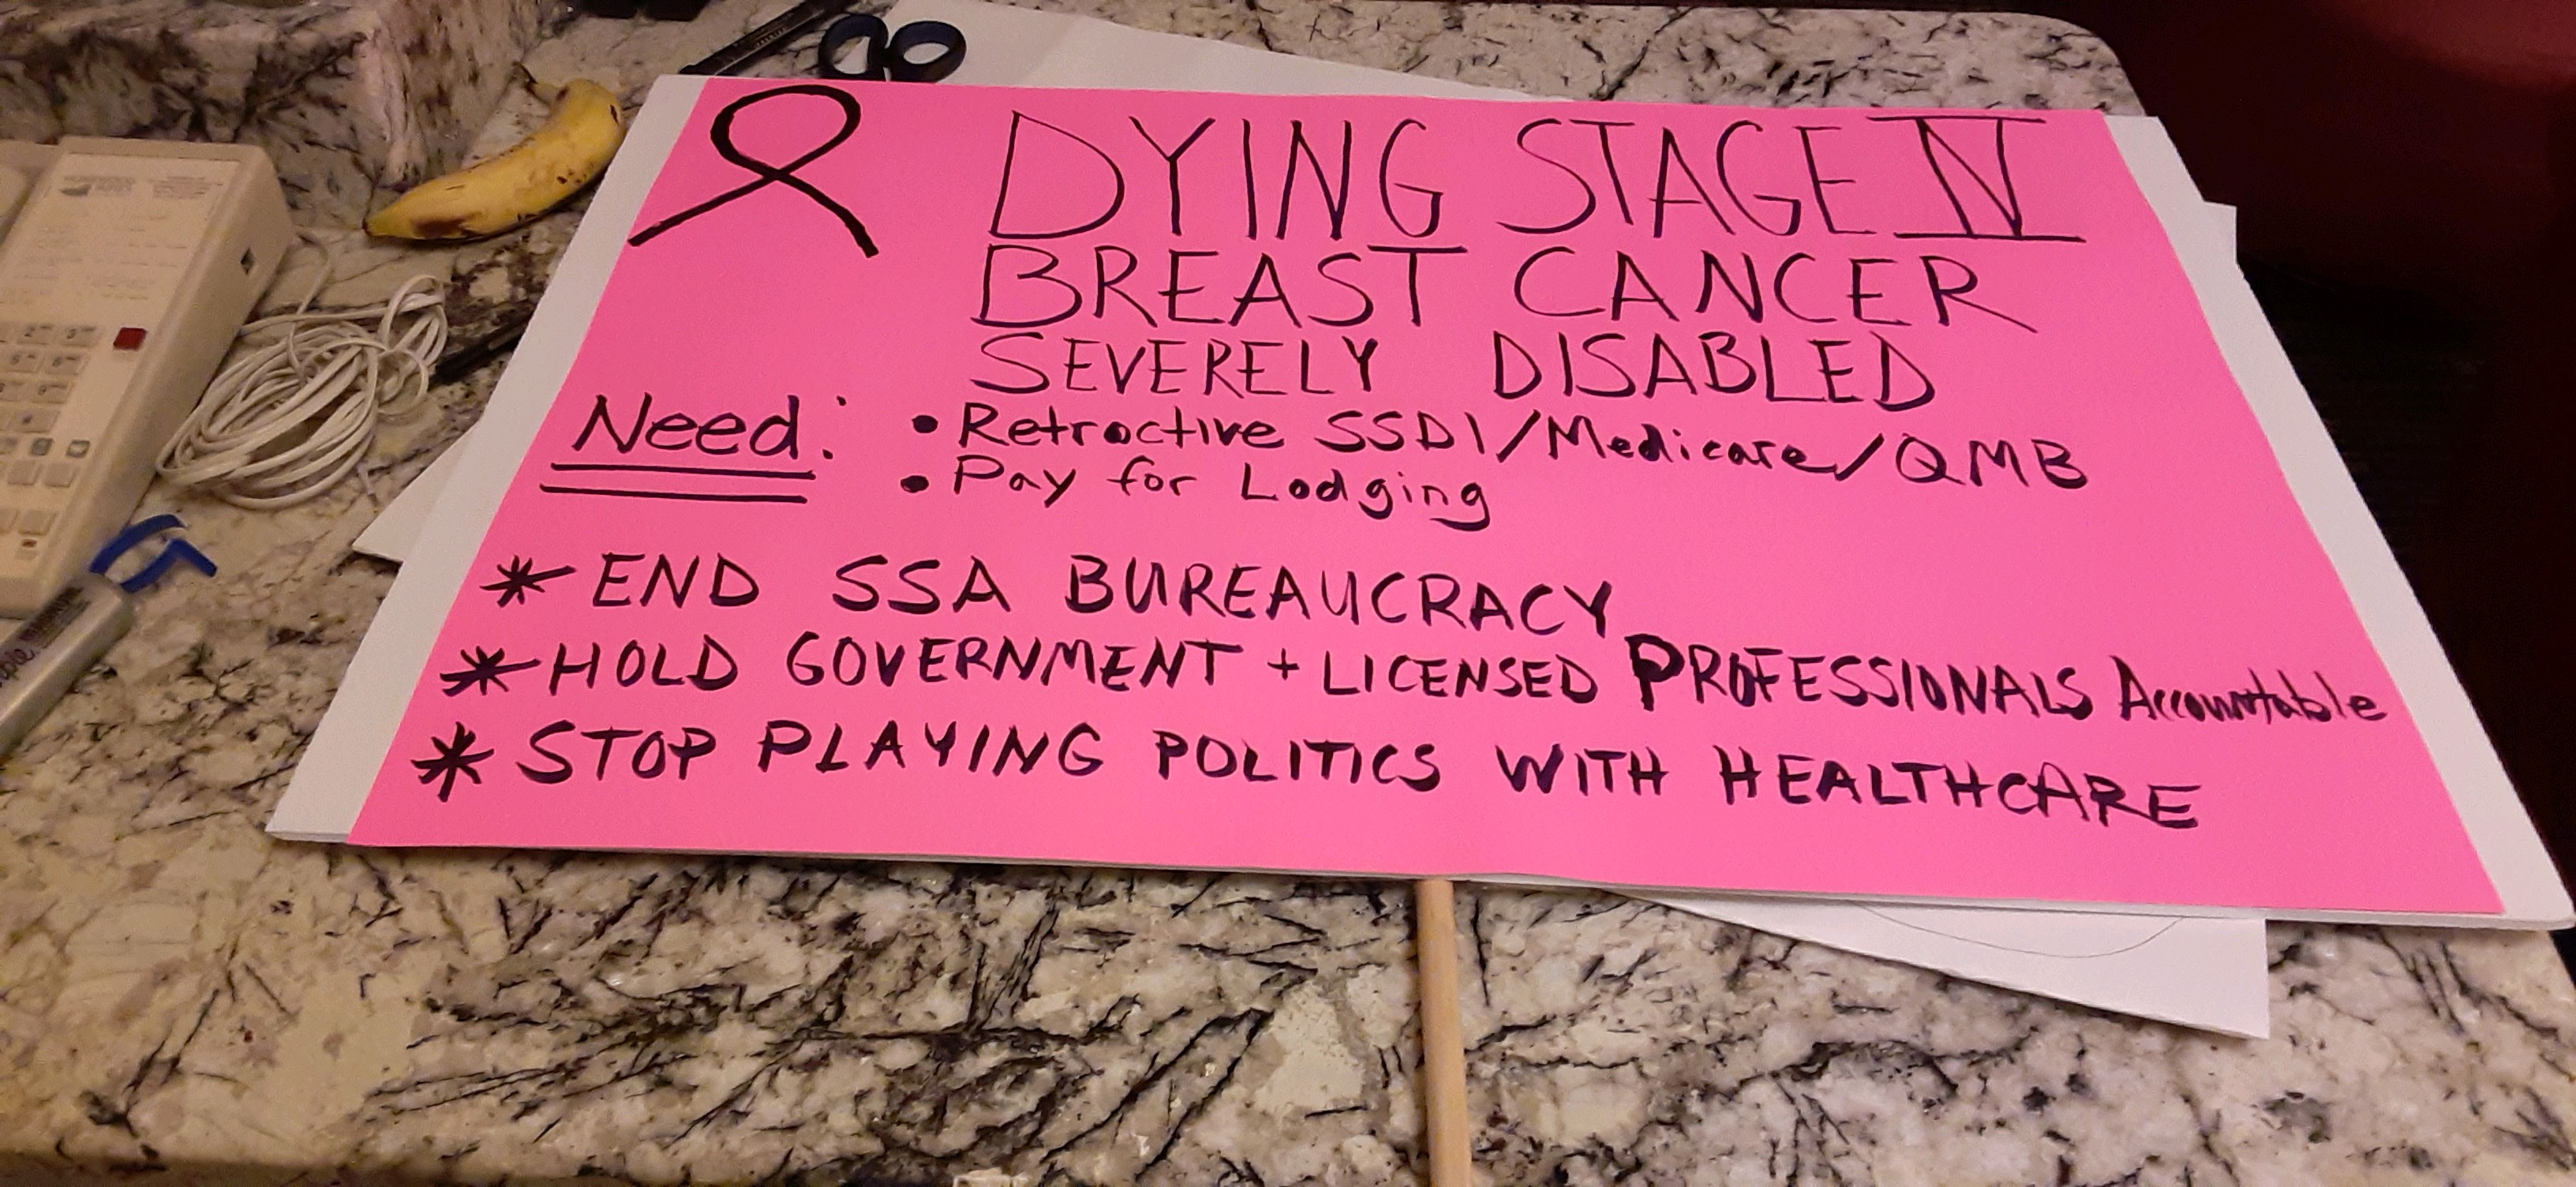 DYING STAGE IV
BREAST CANCER
SEVERELY DISABLED
Need: • Retroctive SSDI/Medicare/QMB
• Pay for Lodging
* END SSA BUREAUCRACY
* HOLD GOVERNMENT + LICENSED PROFESSIONALS Accountable
* STOP PLAYING POLITICS WITH HEALTHCARE